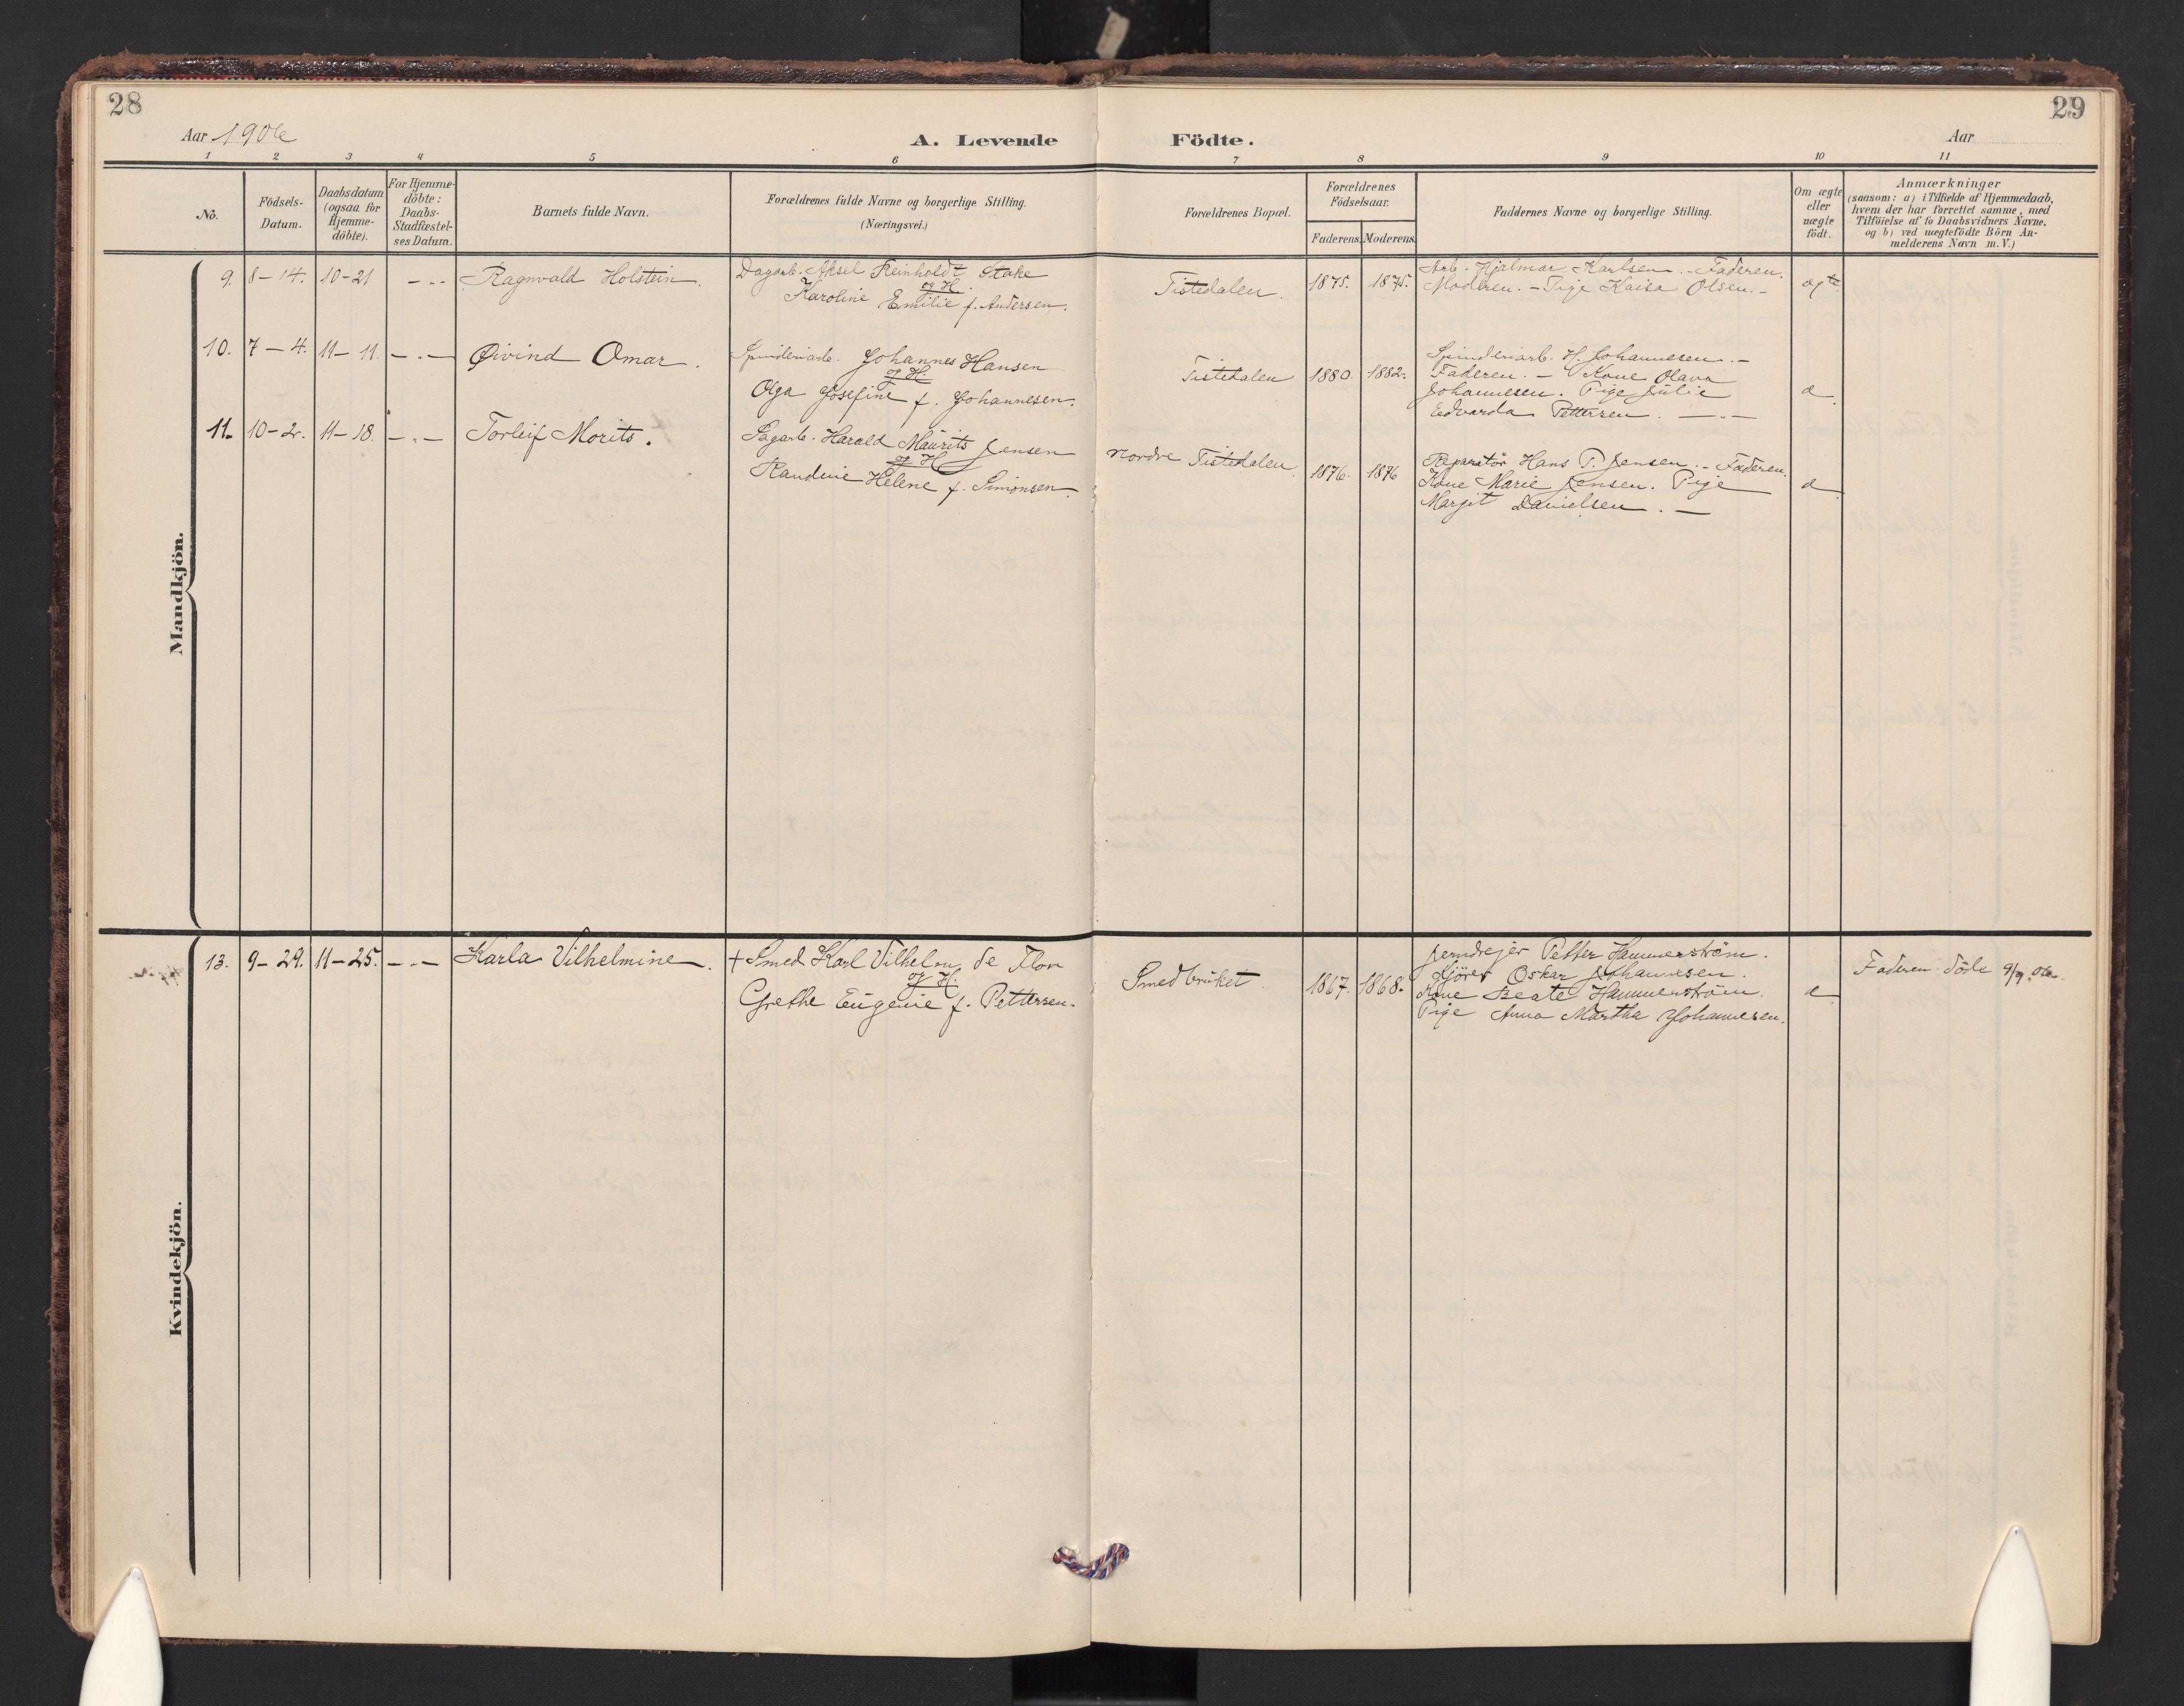 28
29
Aar 1906
A. Levende Födte.
Aar
1 2 3 4 5 6 7 8 9 10 11
No.
Födsels-
Datum.
Daabsdatum
(ogsaa for
Hjemme-
döbte).
For Hjemme-
döbte:
Daabs-
Stadfæstel-
ses Datum.
Barnets fulde Navn.
Forældrenes fulde Navne og borgerlige Stilling.
(Næringsvei.)
Forældrenes Bopæl.
Forældrenes
Födselsaar.
Faderens. Moderens.
Faddernes Navne og borgerlige Stilling.
Om ægte
eller
uægte
födt.
Anmærkninger
(saasom: a) i Tilfælde af Hjemmedaab,
hvem der har forrettet samme, med
Tilföielse af to Daabsvidners Navne.
og b) ved uægtefödte Börn An-
melderens Navn m. V.)
Mandkjön.
9. 8-14. 10-21 - " - Ragnvald Holstein.
Dagarb. Aksel Reinholdt Stake
og H.
Karoline Emilie f. Andersen.
Tistedalen. 1875. 1875.
Arb. Hjalmar Karlsen. - Faderen.
Moderen. - Pige Kaisa Olsen. -
ægte
10. 7-4. 11-11. - " - Øivind Omar.
Spinderiarb. Johannes Hansen
og H.
Olga Josefine f. Johannesen.
Tistedalen 1880. 1882.
Spinderiarb. H. Johannesen. -
Faderen. - Kone Olava
Johannesen. Pige Julie
Edvarda Pettersen. - " -
d
11. 10-2. 11-18. - " - Torleif Morits.
Sagarb. Harald Maurits Jensen
og H
Randine Helene f. Simonsen.
Nordre Tistedalen 1876. 1876
Reparatör Hans P. Jensen. - Faderen.
Kone Marie Jensen. Pige
Margit Danielsen. -
d
Kvindekjön.
13. 9-29. 11-25. - " - Karla Vilhelmine.
+ Smed Karl Vilhelm de Flon
og H.
Grethe Eugenie f. Pettersen.
Smedbruket 1867. 1868.
Jerndrejer Petter Hammerström.
Kjörer Oskar Johannesen.
Kone Beate Hammerström.
Pige Anna Martha Johannesen.
d
Faderen döde 9/9. 06.